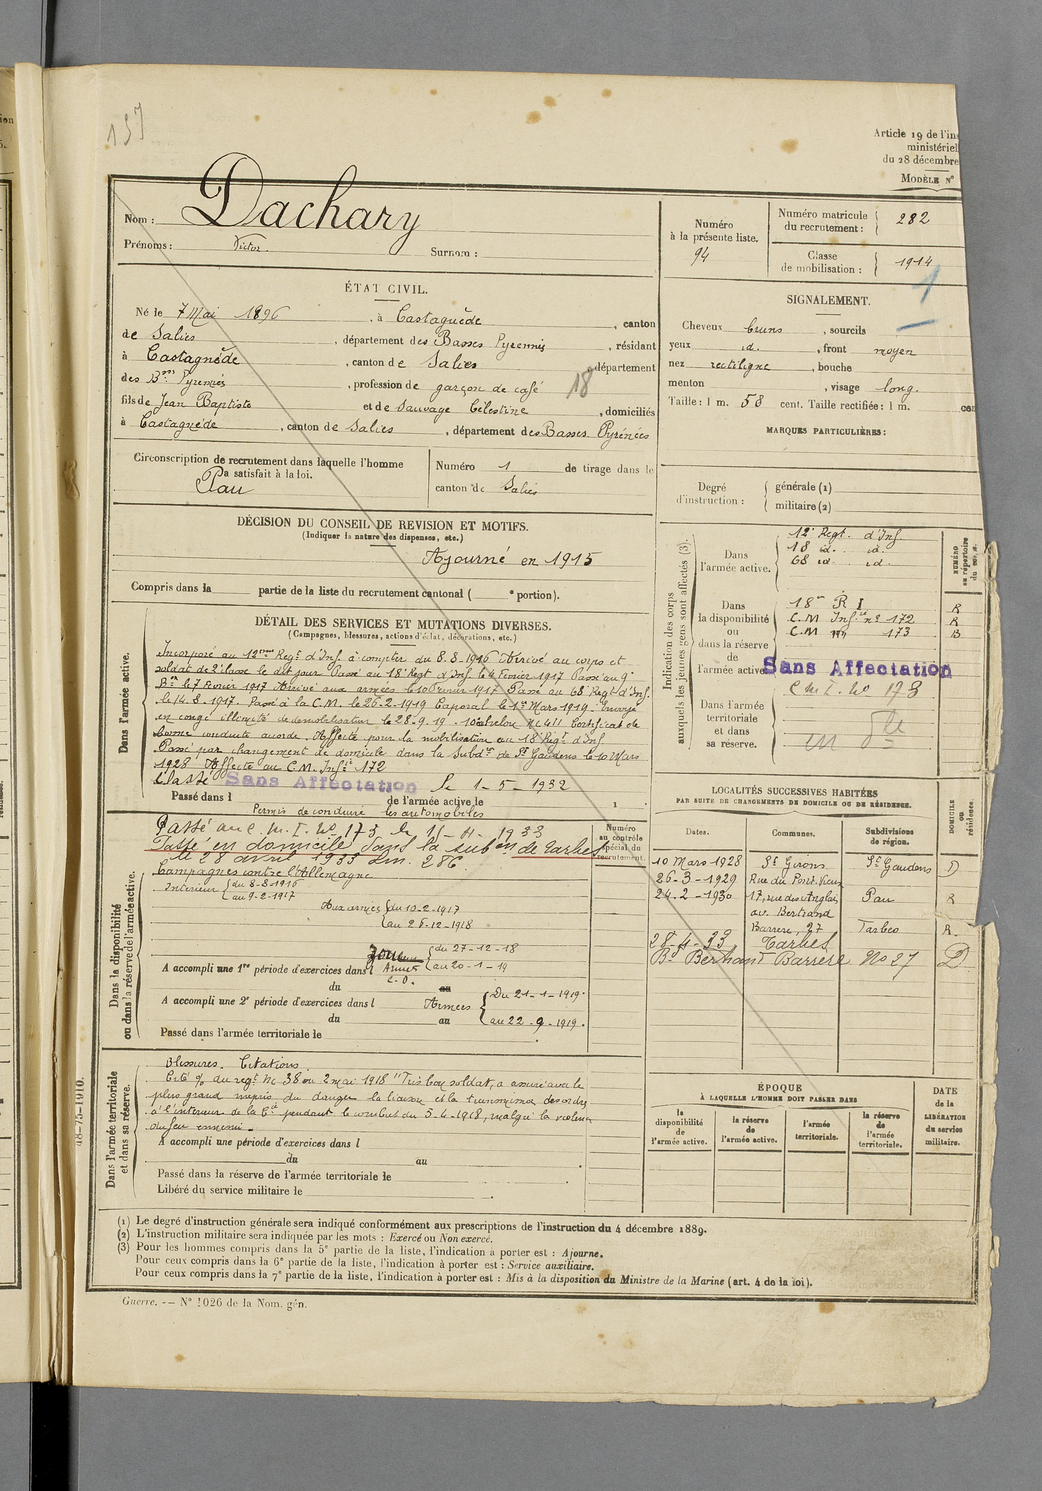 137
Article 19 de l'in
ministériel
du 28 décembre
MODÈLE N°
Nom : Dachary
Prénoms : Victor Surnom :
Numéro
à la présente liste.
94
Numéro matricule
du recrutement : 282
Classe
de mobilisation : 1914
1
ÉTAT CIVIL.
Né le 7 Mai 1896, à Castagnède, canton
de Salies, département des Basses Pyrennés, résidant
à Castagnède, canton de Salies, département
des Bses Pyrennés, profession de garçon de café 18
fils de Jean Baptiste et de Sauvage Célestine, domiciliés
à Castagnède, canton de Salies, département des Basses Pyrénées
SIGNALEMENT.
Cheveux bruns, sourcils
yeux id., front moyen
nez rectiligne, bouche
menton, visage long.
Taille : 1 m. 58 cent. Taille rectifiée : 1 m. cen
MARQUES PARTICULIÈRES :
Circonscription de recrutement dans laquelle l'homme
a satisfait à la loi.
Pau
Numéro 1 de tirage dans le
canton de Salies
Degré
d'instruction :
générale (1)
militaire (2)
DÉCISION DU CONSEIL DE REVISION ET MOTIFS.
(Indiquer la nature des dispenses, etc.)
Ajourné en 1915
Compris dans la partie de la liste du recrutement cantonal ( e portion).
DÉTAIL DES SERVICES ET MUTATIONS DIVERSES.
(Campagnes, blessures, actions d'éclat, décorations, etc.)
Dans l'armée active.
Incorporé au 12eme Regt d'Inf. à compter du 8.8-1916 Arrivé au corps et
soldat de 2e classe le dit jour Passé au 18e Regt d'Inf. le 4 Février 1917 Passé au 9e
Bon le 7 Février 1917 Arrivé aux armées le 10 Février 1917 Passé au 68 Regt d'Inf.
le 14.8.1917. Passé à la C.M. le 26-2-1919 Caporal le 1er Mars 1919. Envoyé
en congé illimité de démobilisation le 28.9.19 Certificat de
bonne conduite accordé. Affecté pour la mobilisation au 18e Regt d'Inf
Passé par changement de domicile dans la Subdon de St Gaudens le 10 Mars
1928. Affecté au C.M. Infie 172
Classé Sans Affectation le 1-5-1932
Passé dans l de l'armée active le 1
Permis de conduire les automobiles
Passé au C.M.I. No 173 le 15-11-1933
Passe en domicile dans la subon de Tarbes
le 28 avril 1933 Dm. 286
Campagnes contre l'Allemagne
Intérieur du 8-8-1916
au 9-2-1917
Aux armées du 10-2-1917
au 26-12-1918
du 27-12-18
au 20-1-19
Dans la disponibilité
ou dans la réserve de l'armée active.
A accompli une 1re période d'exercices dans l
du au
A accompli une 2e période d'exercices dans l Armées Du 21-1-1919.
du au au 22.9-1919.
Passé dans l'armée territoriale le
Numéro
au contrôle
spécial du
recrutement.
Indication des corps
auxquels les jeunes gens sont affectés (3).
Dans
l'armée active.
12e Regt. d'Inf.
18 id. id.
68 id. id.
NUMÉRO
au répertoire
du corps.
Dans
la disponibilité
ou
dans la réserve
de
l'armée active
18e R I R
C.M Infie no 172 R
C.M 173 B
Sans Affectation
C M I No 173
Dans l'armée
territoriale
et dans
sa réserve.
LOCALITÉS SUCCESSIVES HABITÉES
PAR SUITE DE CHANGEMENTS DE DOMICILE OU DE RÉSIDENCE.
Dates. Communes. Subdivisions
de région.
DOMICILE
ou
résidence.
10 Mars 1928 St Girons St Gaudens D
26-3-1929 Rue du Pont-Vieux
24-2-1930 17, rue des Anglais Pau R
av. Bertrand
Barrère, 27 Tarbes R.
28-4-33 Tarbes
Bd Bertrand Barrère No 27 D
Dans l'armée territoriale
et dans sa réserve.
Blessures. Citations
Cité O/ du regt No 38 du 2 mai 1918 "Très bon soldat, a assuré avec le
plus grand mépris du danger la liaison et la transmission des ordres
à l'intérieur de la Cie pendant le combat du 5-4-1918, malgré la violence
du feu ennemi.
A accompli une période d'exercices dans l
du au
Passé dans la réserve de l'armée territoriale le
Libéré du service militaire le
ÉPOQUE
À LAQUELLE L'HOMME DOIT PASSER DANS
la
disponibilité
de
l'armée active.
la réserve
de
l'armée active.
l'armée
territoriale.
la réserve
de
l'armée
territoriale.
DATE
de la
LIBÉRATION
du service
militaire.
48-75-1910.
(1) Le degré d'instruction générale sera indiqué conformément aux prescriptions de l'instruction du 4 décembre 1889.
(2) L'instruction militaire sera indiquée par les mots : Exercé ou Non exercé.
(3) Pour les hommes compris dans la 5e partie de la liste, l'indication à porter est : Ajourne.
Pour ceux compris dans la 6e partie de la liste, l'indication à porter est : Service auxiliaire.
Pour ceux compris dans la 7e partie de la liste, l'indication à porter est : Mis à la disposition du Ministre de la Marine (art. 4 de la loi).
Guerre. — N° 1026 de la Nom. gén.